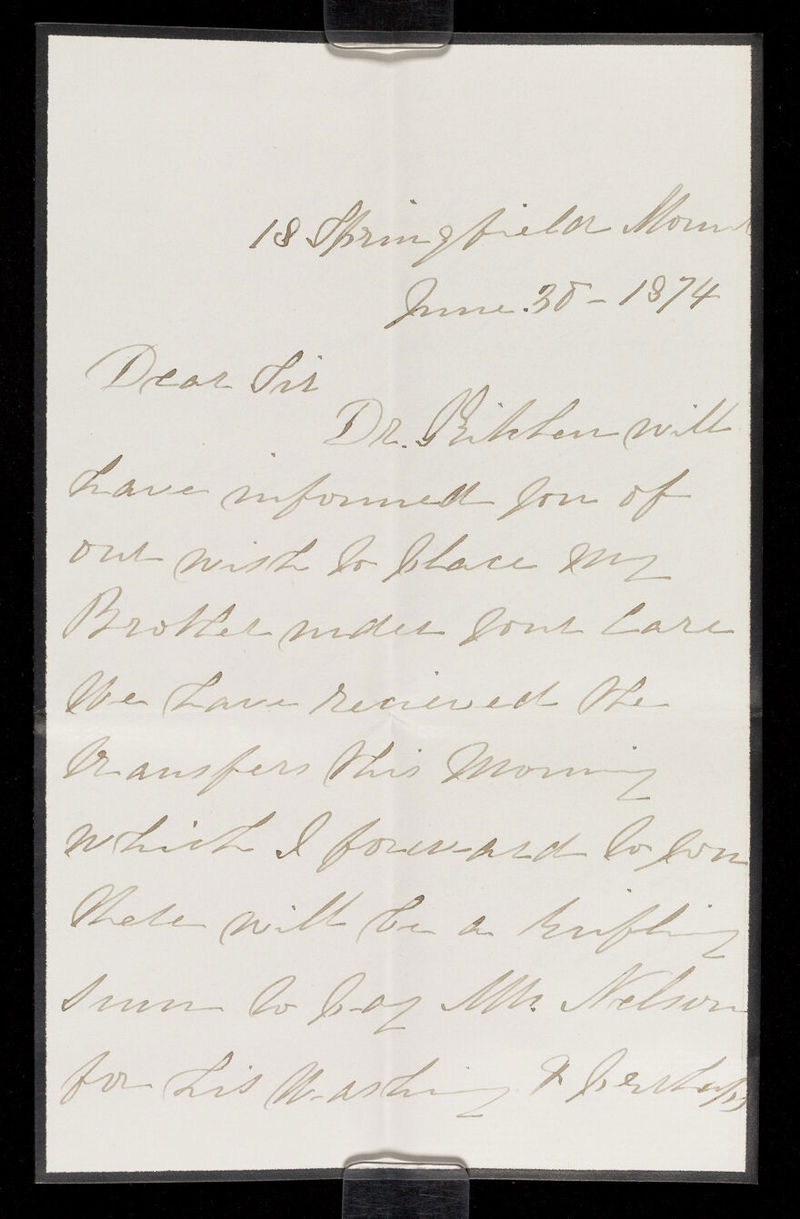 18 Springfield Mount
June 30 - 1874
Dear Sir
Dr. Kitchen will
have informed you of
our wish to place my
Brother under your Care
We have recieved the
transfers this Morning
which I forward to you
there will be a trifling
sum to pay Mr. Nelson
for his Washing & perhaps